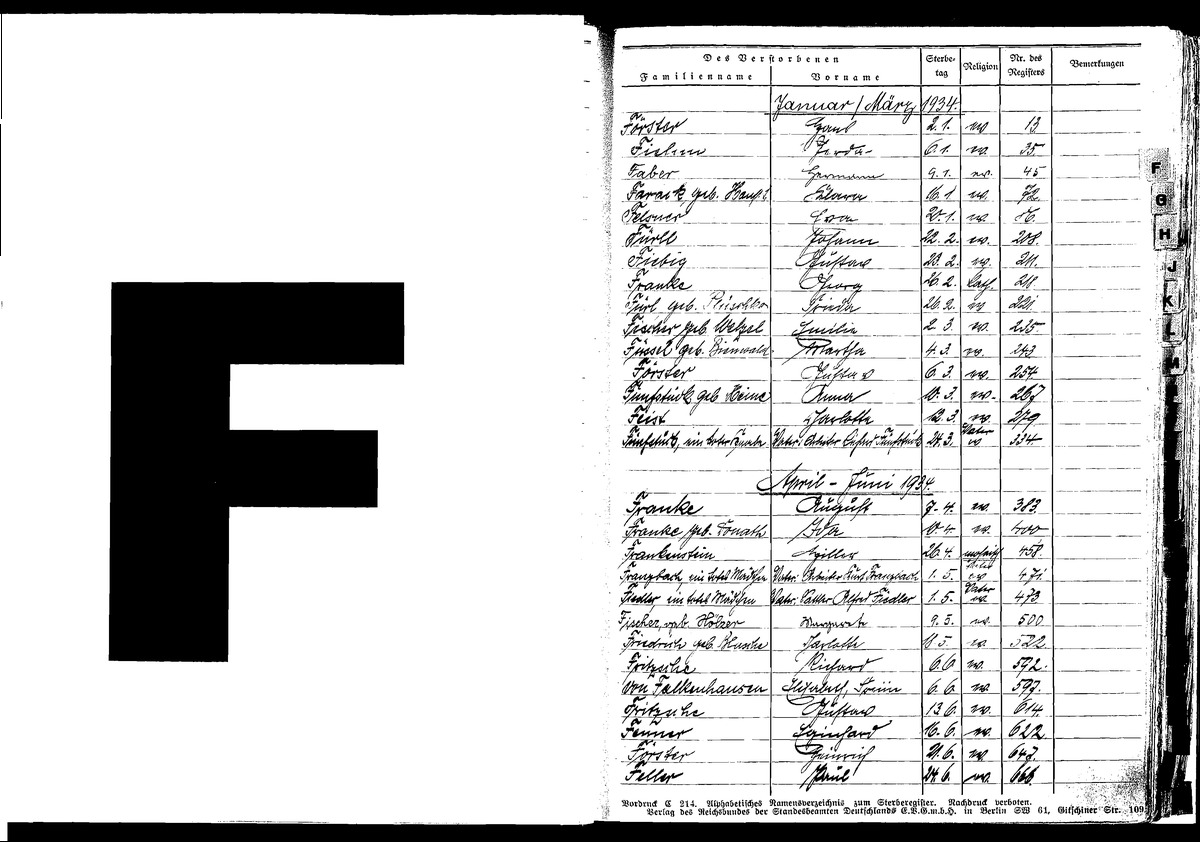 F
Des Verstorbenen
Familienname Vorname Sterbetag Religion Nr. des Registers Bemerkungen
Januar / März 1934.
Förster 2.1. ev. 13
Gerda 6.1. ev. 35
Faber Hermann 9.1. ev. 45
geb. Klara 16.1. ev. 72.
Felsner Eva 20.1. ev. 86.
Fürll Johann 22.2. ev. 208.
Fiebig Gustav 23.2. ev. 211.
Franke Georg 26.2. kath. 218.
Fürl geb. 26.2. ev. 221.
Fischer, geb. Welzel Emilie 2.3. ev. 235.
Füssel geb. Bienwald Martha 4.3. ev. 243
Förster Gustav 6.3. ev. 254.
Fünfstück geb. Heine Anna 10.3. ev. 267
Feist Charlotte 12.3. ev. 279
Fünfstück, ein toter Knabe Vater: Arbeiter Fünfstück 24.3. Vater ev 334.
April - Juni 1934.
Franke August 7.4. ev. 383.
Franke, geb. Donath Ida 10.4. ev. 400
Frankenstein 26.4. mosaisch 458.
Franzbach, ein totes Mädchen Vater: Arbeiter Kurt Franzbach 1.5. ev 471.
Fiedler, ein totes Mädchen Vater: Sattler Alfred Fiedler 1.5. Vater ev. 473
Fischer, geb. Hölzer Margarete 9.5. ev. 500
Friedrich geb. Charlotte 11.5. ev. 522.
Fritzsche Richard 6.6. ev. 592.
von Falkenhausen Elisabeth, 6.6. ev. 597.
Fritzsche Gustav 13.6. ev. 614.
Fenner Eginhard 16.6. ev. 622.
Förster Heinrich 21.6. ev. 647.
Feller Paul 24.6. ev. 666.
Vordruck C 214. Alphabetisches Namensverzeichnis zum Sterberegister. Nachdruck verboten.
Verlag des Reichsbundes der Standesbeamten Deutschlands E.V.G.m.b.H. in Berlin SW 61, Gitschiner Str. 109
F
G
H
J
K
L
M